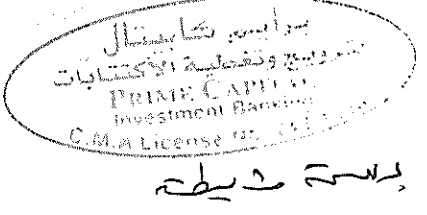 برايم كابيتال
ترويج وتغطية الاكتتابات
PRIME CAPITAL
Investment Banking
C.M.A License